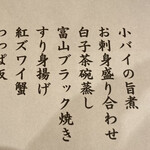 小バイの旨煮
お刺身盛り合わせ
白子茶碗蒸し
富山ブラック焼き
すり身揚げ
紅ズワイ蟹